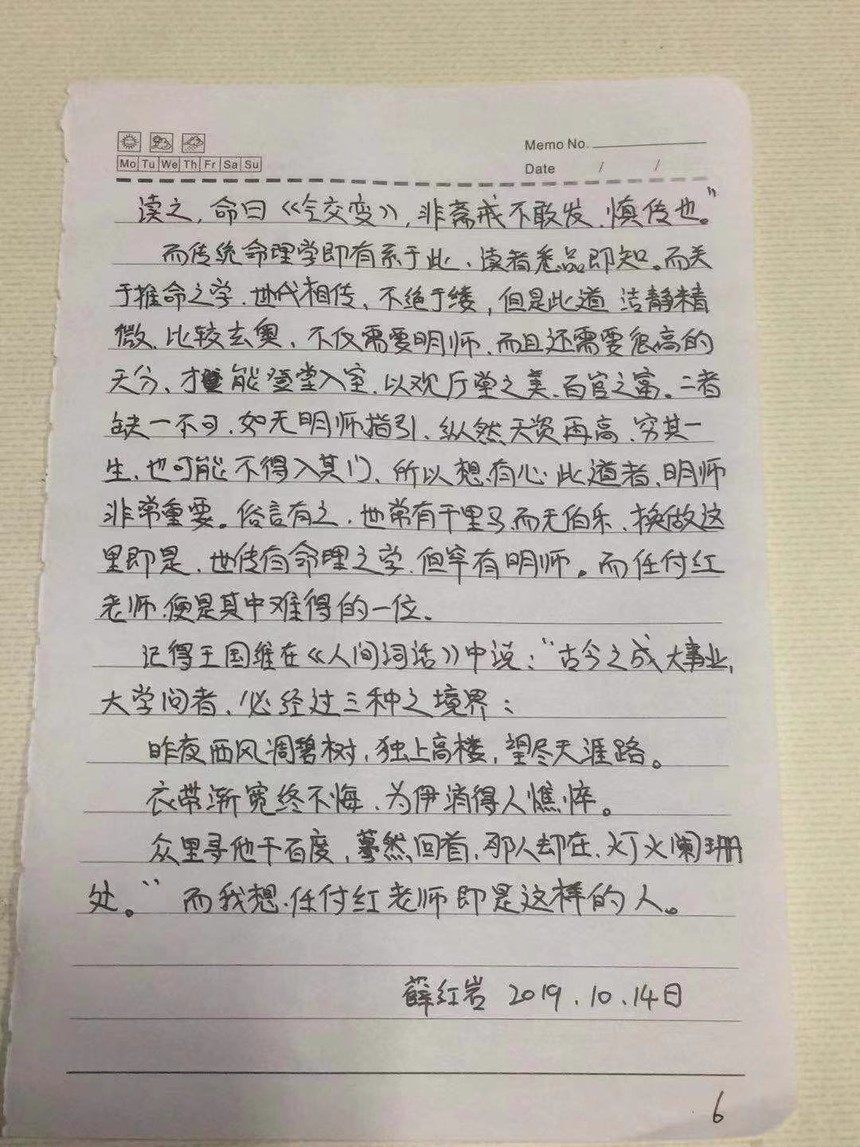 Memo No.
Mo Tu We Th Fr Sa Su
Date / /
读之，命曰《气交变》，非斋戒不敢发、慎传也。”
而传统命理学即有系于此、读者悉品即知。而关
于推命之学、世代相传、不绝于缕，但是此道 洁静精
微、比较玄奥、不仅需要明师、而且还需要很高的
天分、才能登堂入室、以观厅堂之美、百官之富。二者
缺一不可、如无明师指引、纵然天资再高、穷其一
生、也可能不得入其门、所以想有心此道者、明师
非常重要。俗言有之、世常有千里马而无伯乐、换做这
里即是、世传有命理之学、但罕有明师。而任付红
老师、便是其中难得的一位。
记得王国维在《人间词话》中说：“古今之成大事业、
大学问者、必经过三种之境界：
昨夜西风凋碧树，独上高楼，望尽天涯路。
衣带渐宽终不悔、为伊消得人憔悴。
众里寻他千百度，蓦然回首，那人却在、灯火阑珊
处。“ 而我想、任付红老师即是这样的人。
薛红岩 2019.10.14日
6